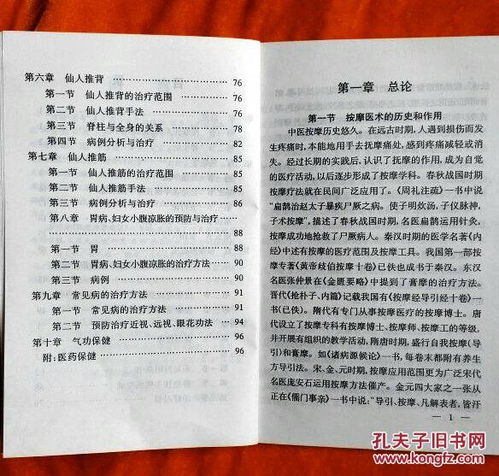 第六章 仙人推背 76
第一节 仙人推背的治疗范围 76
第二节 仙人推背手法 76
第三节 脊柱与全身的关系 78
第四节 病例分析与治疗 82
第七章 仙人推筋 85
第一节 仙人推筋的治疗范围 85
第二节 仙人推筋手法 85
第三节 病例分析与治疗 85
第八章 胃病、妇女小腹凉胀的预防与治疗
88
第一节 胃 88
第二节 胃病、妇女小腹凉胀的治疗方法
第三节 病例 90
第九章 常见病的治疗方法 91
第一节 常见病的治疗方法 91
第二节 预防治疗近视、远视、眼花功法 94
第十章 气功保健 96
附:医药保健 96
第一章 总论
第一节 按摩医术的历史和作用
中医按摩历史悠久。在远古时期,人遇到损伤而发
生疼痛时,本能地用手去抚摩痛处,感到疼痛减轻或消
失。经过长期的实践后,认识了抚摩的作用,成为自觉
的医疗活动,以后逐步形成了按摩学科。春秋战国时期,
按摩疗法就在民间广泛应用了。《周礼注疏》一书中说
“扁鹊治赵太子暴疾尸厥之病。使子明炊汤,子仪脉神,
子术按摩”,描述了春秋战国时期,名医扁鹊运用针灸,
按摩成功地抢救了尸厥病人。秦汉时期的医学名著《内
经》中述有按摩的医疗范围及按摩工具。我国第一部按
摩专著《黄帝歧伯按摩十卷》已佚也成书于秦汉。东汉
名医张仲景在《金匮要略》中提到了膏摩的治疗方法。
晋代《抢朴子、内篇》记载我国有《按摩经导引经十卷》一
书(已佚)。隋代有专门从事按摩医疗的按摩博士。唐
代设立了按摩专科有按摩博士、按摩师、按摩工的等级,
并开展有组织的教学活动,隋唐时期,盛行自我按摩(导
引)和膏摩。如《诸病源候论》一书,每卷末都附有养生
方导引法。宋、金、元时期,按摩应用范围更为广泛宋代
名医庞安石运用按摩方法催产。金元四大家之一张从
正在《儒门事亲》一书中说:“导引、按摩、凡解表者,皆汗
— 1 —
孔夫子旧书网
kongfz.com